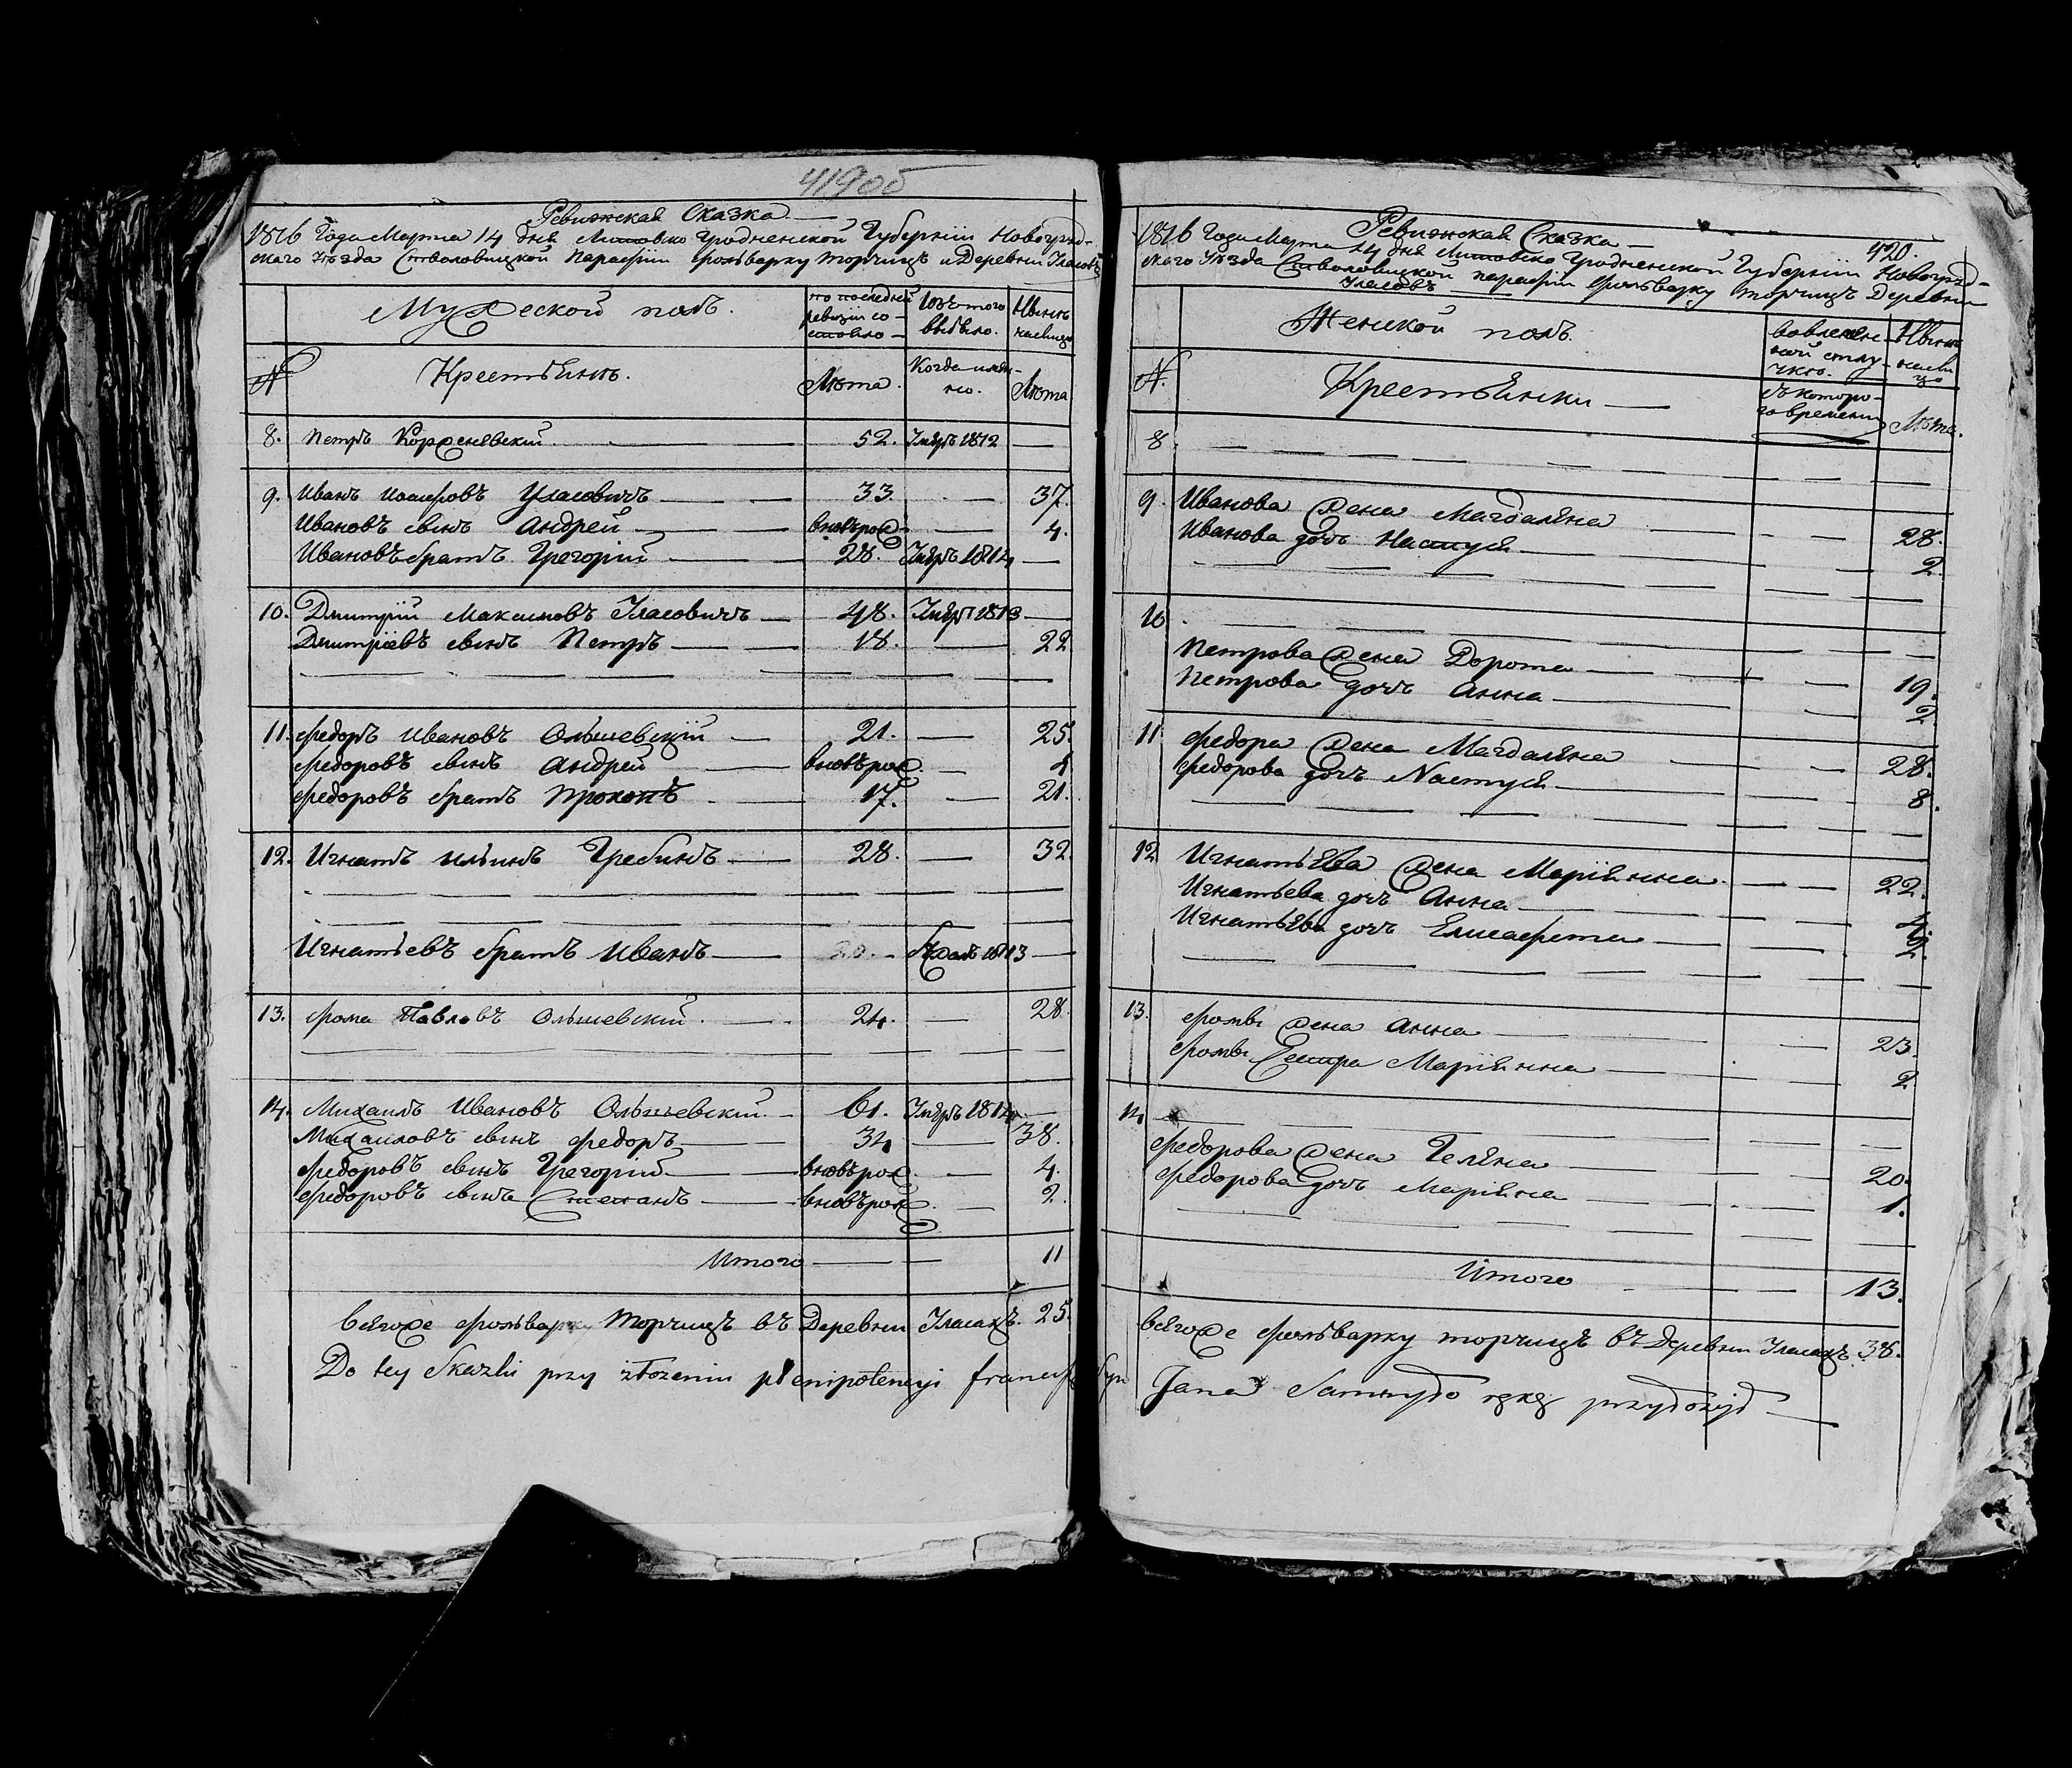 419об
Ревижская Сказка
1816 Года Марта 14 дня Литовско Гродненской Губернiи Новогруд-
скаго Уѣзда Столовицкой Парафiи Фольварку Торчицъ и Деревни Уласовъ
Мужеской полъ.
по последней ревизiи со-стояло
Изъ того выбыло.
Нынѣ налицо
№
Крестьянъ.
Лѣта.
Когда имян-но.
Лѣта
8. Петръ Корженевский 52. Умръ 1812 —
9. Иванъ Уласовичъ 33 — 37.
Ивановъ сынъ Андрей вновърож — 4.
Ивановъ братъ Грегорiй 28. Умръ 1814 —
10. Дмитрiй Максимовъ Уласовичъ 48. Умръ 1813 —
Дмитрiевъ сынъ Петръ 18. — 22
11. Федоръ Ивановъ Ольшевскiй 21. — 25.
Федоровъ сынъ Андрей вновърож. — 4
Федоровъ братъ Прокопъ 17. — 21.
12. Игнатъ Ильинъ Гребинъ 28. — 32.
Игнатьевъ братъ Иванъ 20. — Бжалъ 1813 —
13. Фома Павловъ Ольшевский 24. — 28.
14. Михаилъ Ивановъ Ольшевский 61. Умръ 1814 —
Михаиловъ сынъ Федоръ 34 — 38.
Федоровъ сынъ Грегорiй вновърож — 4.
Федоровъ сынъ Степанъ вновърож. — 2.
Итого 11
Всягоже Фольварку Торчицъ въ Деревни Уласахъ. 25.
Do tey Skazki przy złożeniu plenipotencyi
420.
Ревижская Сказка
1816 Года Марта 14 дня Литовско Гродненской Губернiи Новогруд-
скаго Уѣзда Столовицкой парафiи Фольварку Торчицъ Деревни
Уласовъ
Женской полъ.
Вовремен-ной отлу-чкѣ.
Нынѣ налицо
№.
Крестьянки
Съ которо-го времени
Лѣта.
8.
9. Иванова жена Магдаляна 28.
Иванова дочь Настуся 2.
10.
Петрова жена Дорота 19.
Петрова дочь Анна 2
11 Федора жена Магдаляна 28.
Федорова дочь Настуся 8.
12 Игнатьева жена Марiянна 22.
Игнатьева дочь Анна 4.
Игнатьева дочь Елисафета 2.
13. Фомы жена Анна 23.
Фомы Сестра Марiянна 2
14
Федорова жена Геляна 20.
Федорова дочь Марiяна 1.
Итого 13.
Всягоже Фольварку Торчицъ въ Деревни Уласахъ. 38.